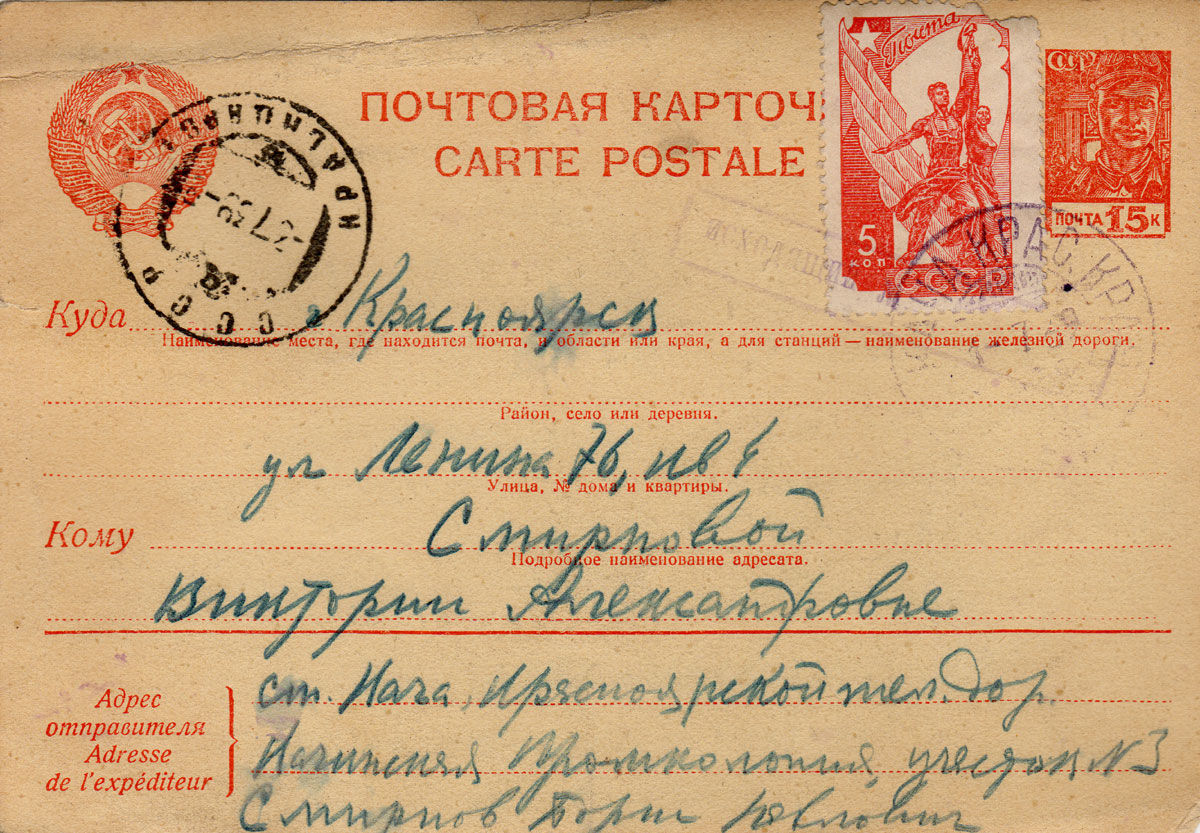 ПОЧТОВАЯ КАРТОЧ
CARTE POSTALE
Почта
5
КОП
СССР
СССР
ПОЧТА 15 К
Куда г Красноярск
Наименование места, где находится почта, и области или края, а для станций — наименование железной дороги.
Район, село или деревня.
ул Ленина 76, кв
Улица, № дома и квартиры.
Кому Смирновой
Подробное наименование адресата.
Виктории Александровне
Адрес
отправителя
Adresse
de l'expéditeur
ст. Красноярской жел. дор.
Промколония, участок N 3
Смирнов Борис